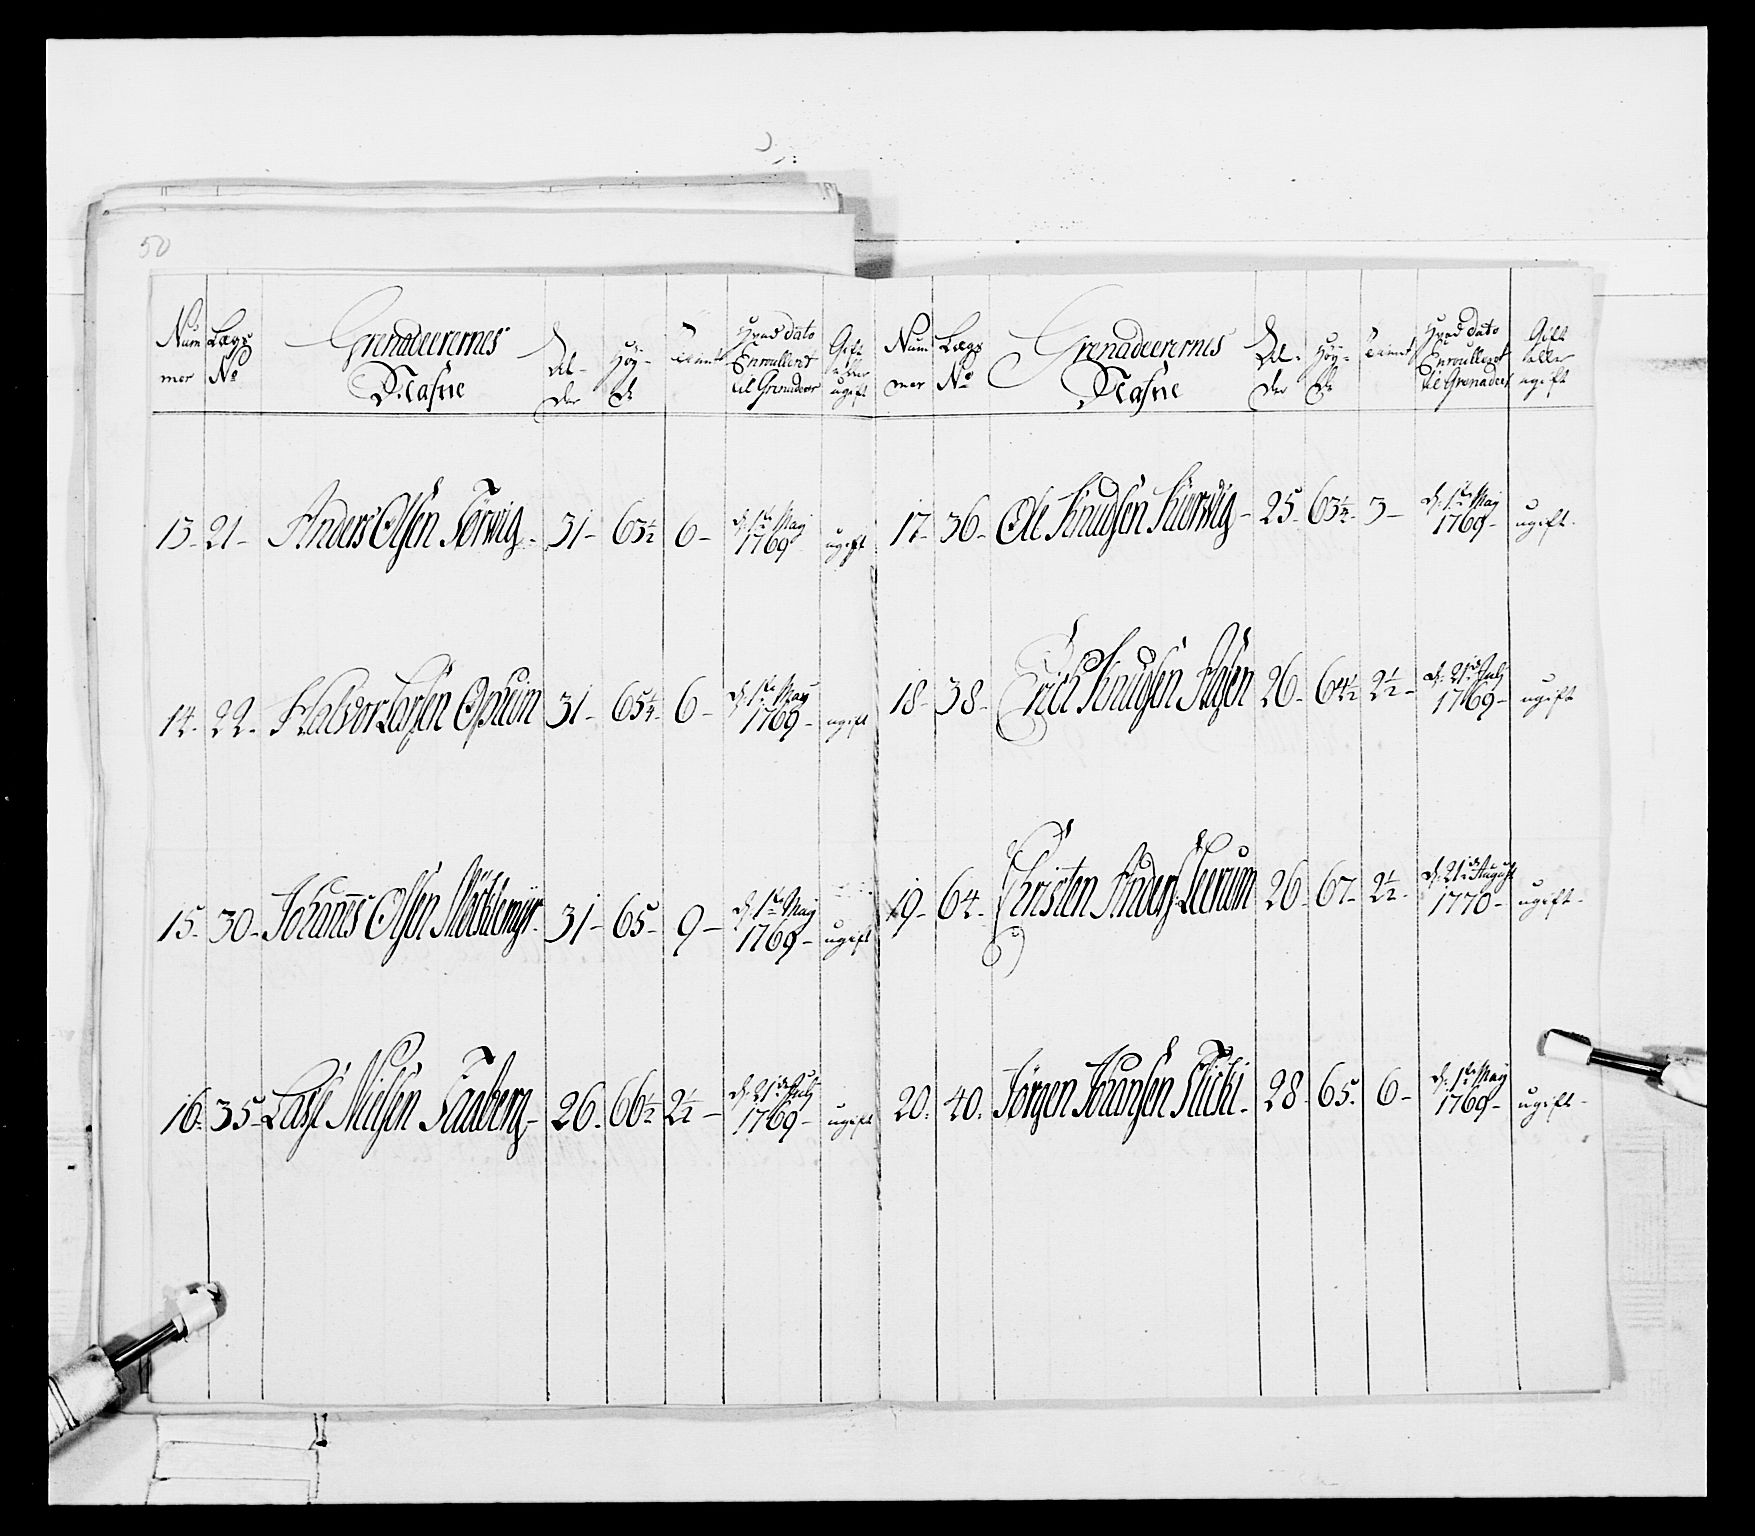 50
Num mer Lægs No Grenadeerernes Nafne Al- der Høy- de Tient Hvad dato Enroullert til Grenadeer Gift eller ugift
13- 21- Anders Olsen Torwig- 31- 63½ 6- d: 1te May 1769- ugift
14- 22- Halvor Larsen Opsuin 31- 65¼- 6- d: 1te May 1769- ugift
15- 30- Johanes Olsen 31- 65- 9- d: 1te May 1769- ugift
16- 35- Lasse Nielsen Taaberg- 26- 66½ 2½- d: 21de July 1769- ugift
Num mer Lægs No Grenadeerernes Nafne Al- der Høy- de Tient Hvad dato Enroullert til Grenadeer Gift eller ugift
17- 36- Ole Knudsen 25- 63¼- 3- d: 1te May 1769- ugift-
18- 38- Erich Knudsen 26- 64½ 2½- d: 21de July 1769- ugift
19- 64- Christen Anders: Leerum 26 67- 2½- d: 21de August 1770- ugift-
20- 40- Jørgen Johansen 28- 65- 6- d: 1te May 1769- ugift-